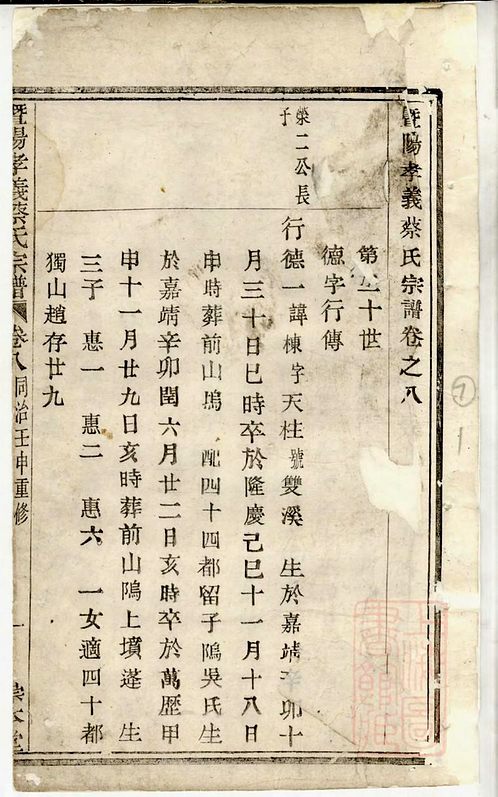 暨陽孝義蔡氏宗譜卷之八
第 十世
德字行傳
榮二公長
子
行德一諱棟字天柱號雙溪 生於嘉靖辛卯十
月三十日巳時卒於隆慶己巳十一月十八日
申時葬前山塢 配四十四都留子隖吳氏生
於嘉靖辛卯閏六月廿二日亥時卒於萬歷甲
申十一月廿九日亥時葬前山隖上墳蓬 生
三子 惠一 惠二 惠六 一女適四十都
獨山趙存廿九
暨陽孝義蔡氏宗譜 卷八 同治壬申重修 一